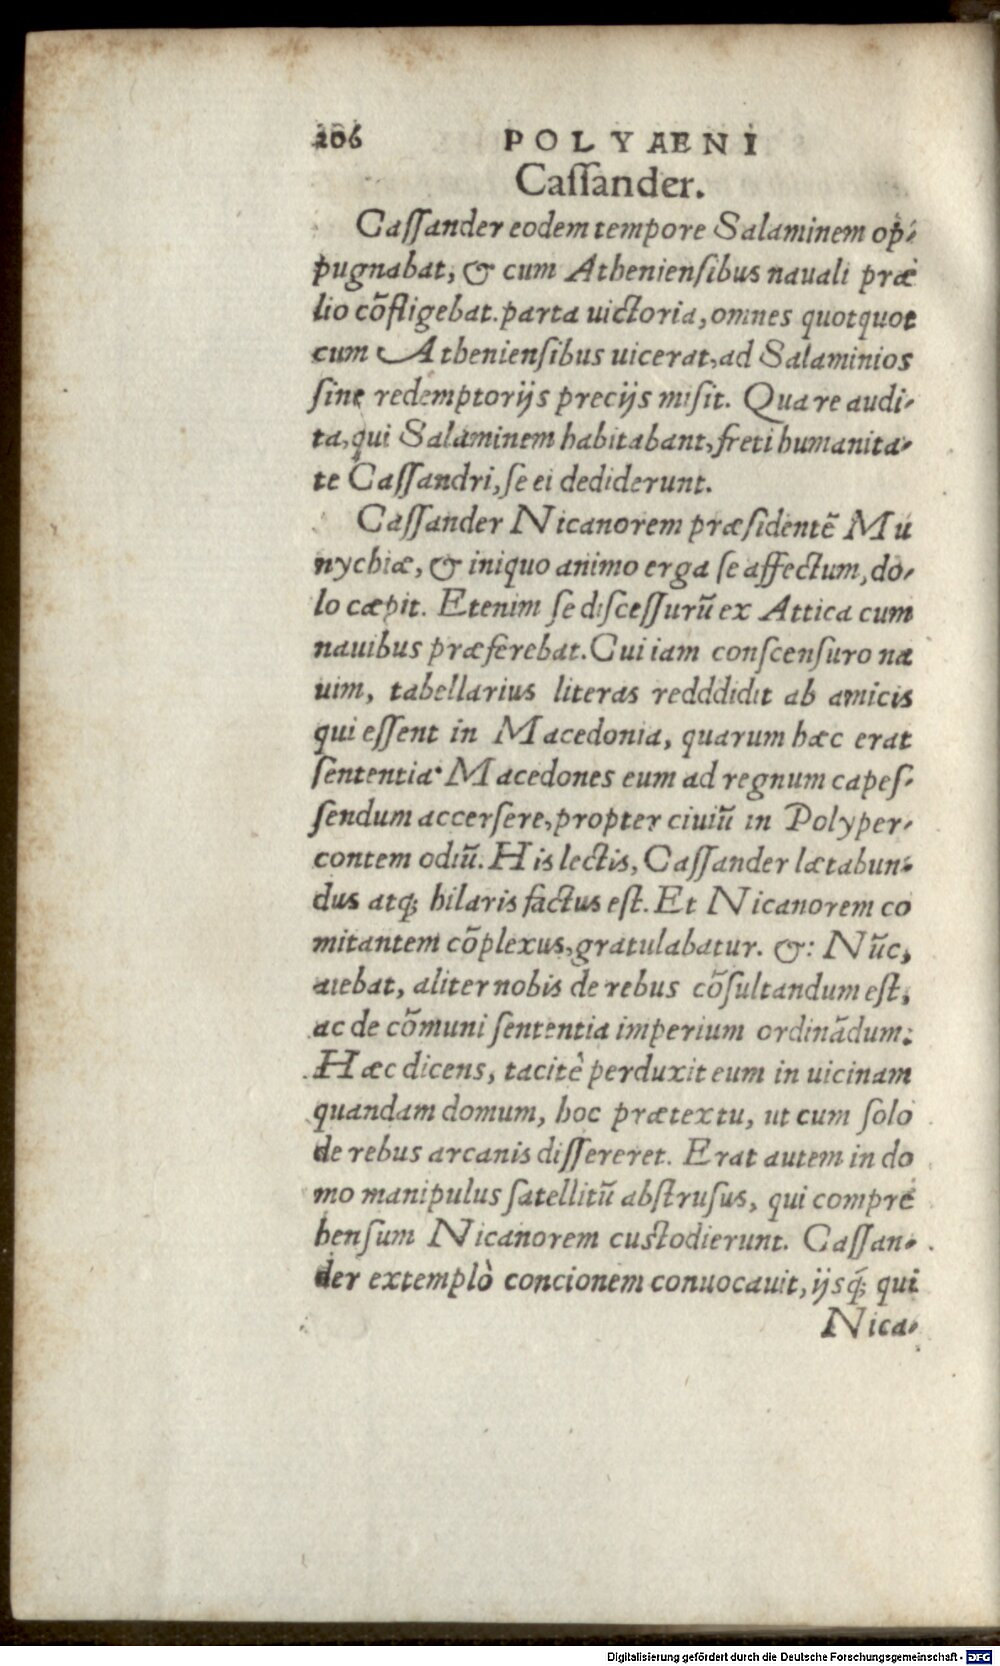 206 POLYAENI
Caſſander.
Caſſander eodem tempore Salaminem op-
pugnabat, & cum Athenienſibus nauali præ
lio cōfligebat. parta uictoria, omnes quotquot
cum Athenienſibus uicerat, ad Salaminios
ſine redemptorijs precijs miſit. Qua re audi-
ta, qui Salaminem habitabant, freti humanita-
te Caſſandri, ſe ei dediderunt.
Caſſander Nicanorem præſidentē Mu
nychiæ, & iniquo animo erga ſe affectum, do-
lo cæpit. Etenim ſe diſceſſurū ex Attica cum
nauibus præferebat. Cui iam conſcenſuro na
uim, tabellarius literas redddidit ab amicis
qui eſſent in Macedonia, quarum hæc erat
ſententia. Macedones eum ad regnum capeſ-
ſendum accerſere, propter ciuiū in Polyper-
contem odiū. His lectis, Caſſander lætabun-
dus atq; hilaris factus eſt. Et Nicanorem co
mitantem cōplexus, gratulabatur. &: Nūc,
aiebat, aliter nobis de rebus cōſultandum eſt,
ac de cōmuni ſententia imperium ordinādum:
Hæc dicens, tacitè perduxit eum in uicinam
quandam domum, hoc prætextu, ut cum ſolo
de rebus arcanis diſſereret. Erat autem in do
mo manipulus ſatellitū abſtruſus, qui compre
henſum Nicanorem cuſtodierunt. Caſſan-
der extemplò concionem conuocauit, ijsq; qui
Nica-
Digitalisierung gefördert durch die Deutsche Forschungsgemeinschaft - DFG